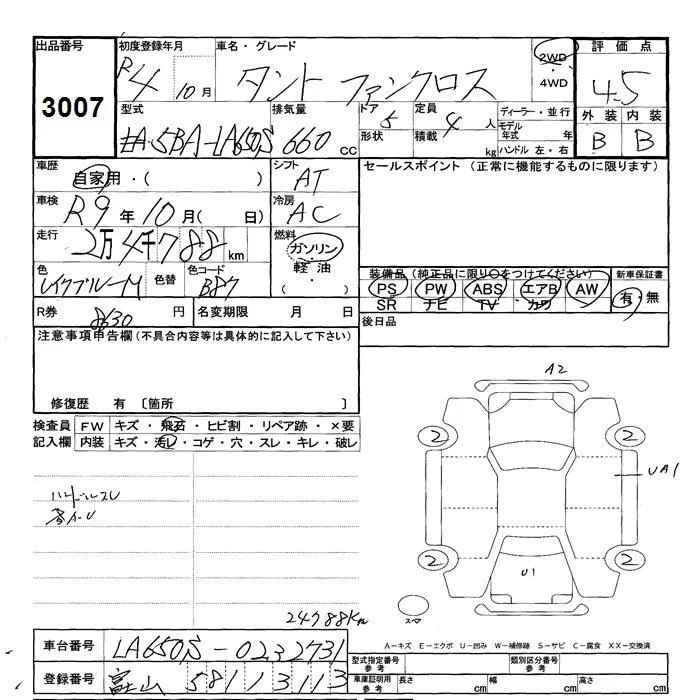 出品番号 初度登録年月 車名・グレード 評価点
3007 R4 10月 タント ファンクロス 2WD・4WD 4.5
型式 排気量 ドア 定員 ディーラー・並行 外装 内装
5BA-LA650S 660cc 5 4人 モデル年式 年 B B
形状 積載 kg ハンドル 左・右
車歴 自家用・( ) シフト AT セールスポイント (正常に機能するものに限ります)
車検 R9年10月( 日) 冷房 AC
走行 2万4千788km 燃料 ガソリン・軽油・( )
色 レイクブルーM 色替 色コード B87
装備品 (純正品に限り○をつけてください) 新車保証書
PS PW ABS エアB AW 有・無
SR ナビ TV カワ
R券 8630円 名変期限 月 日 後日品
注意事項申告欄(不具合内容等は具体的に記入して下さい)
修復歴 有 〔箇所 〕
検査員 FW キズ・飛石・ヒビ割・リペア跡・×要
記入欄 内装 キズ・汚レ・コゲ・穴・スレ・キレ・破レ
ハンドルスレ
A2
2 2
UA1
2 2
U1
スペア
24788km
A−キズ E−エクボ U−凹み W−補修跡 S−サビ C−腐食 XX−交換済
車台番号 LA650S-0232731
型式指定番号参考 類別区分番号参考
登録番号 富山 581 1 3113
車庫証明用参考 長さ cm 幅 cm 高さ cm